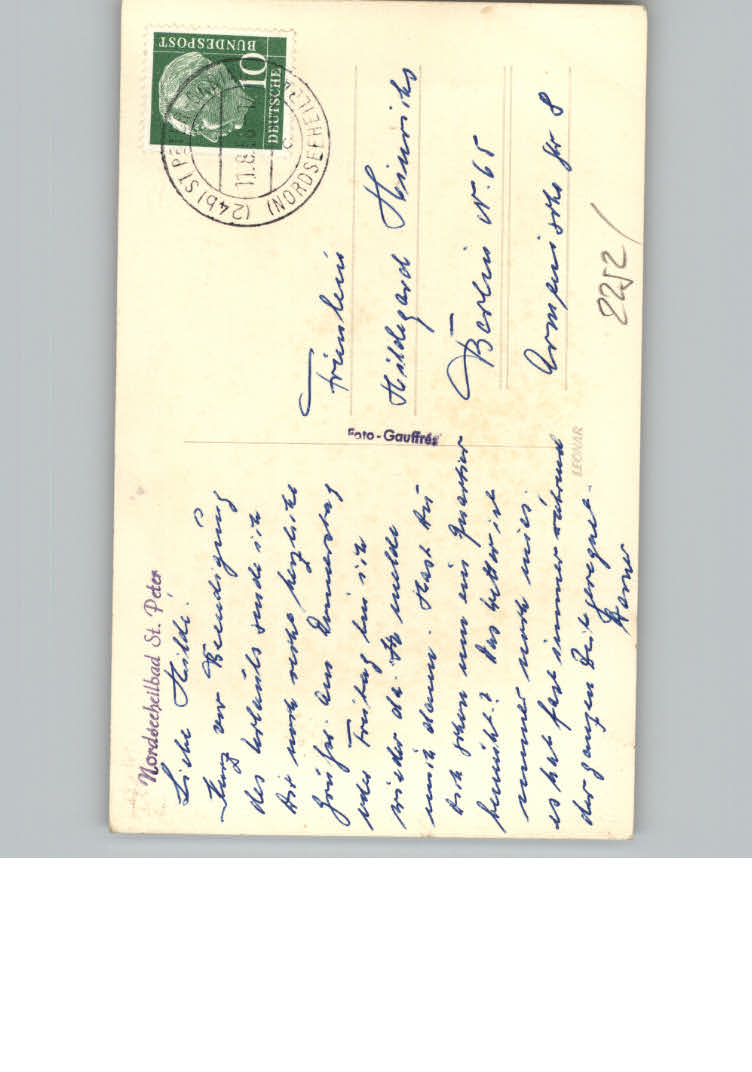 Nordseeheilbad St. Peter
Liebe Hilde.
Kurz vor Beendigung
des Urlaubs sende ich
Dir noch recht herzliche
Grüße. Am Donnerstag
oder Freitag bin ich
wieder da. Ich melde
mich dann. Hast Du
Dich schon um ein Quartier
bemüht? Das Wetter ist
immer noch mies.
es hat fast immer während
der ganzen Zeit geregnet.
Foto-Gauffrés
LEONAR
DEUTSCHE
BUNDESPOST
10
(24b) ST. PETER
11.8.
(NORDSEEHEILBAD)
c
Fräulein
Hildegard Hinrichs
Berlin N. 65
Str 8
2252/